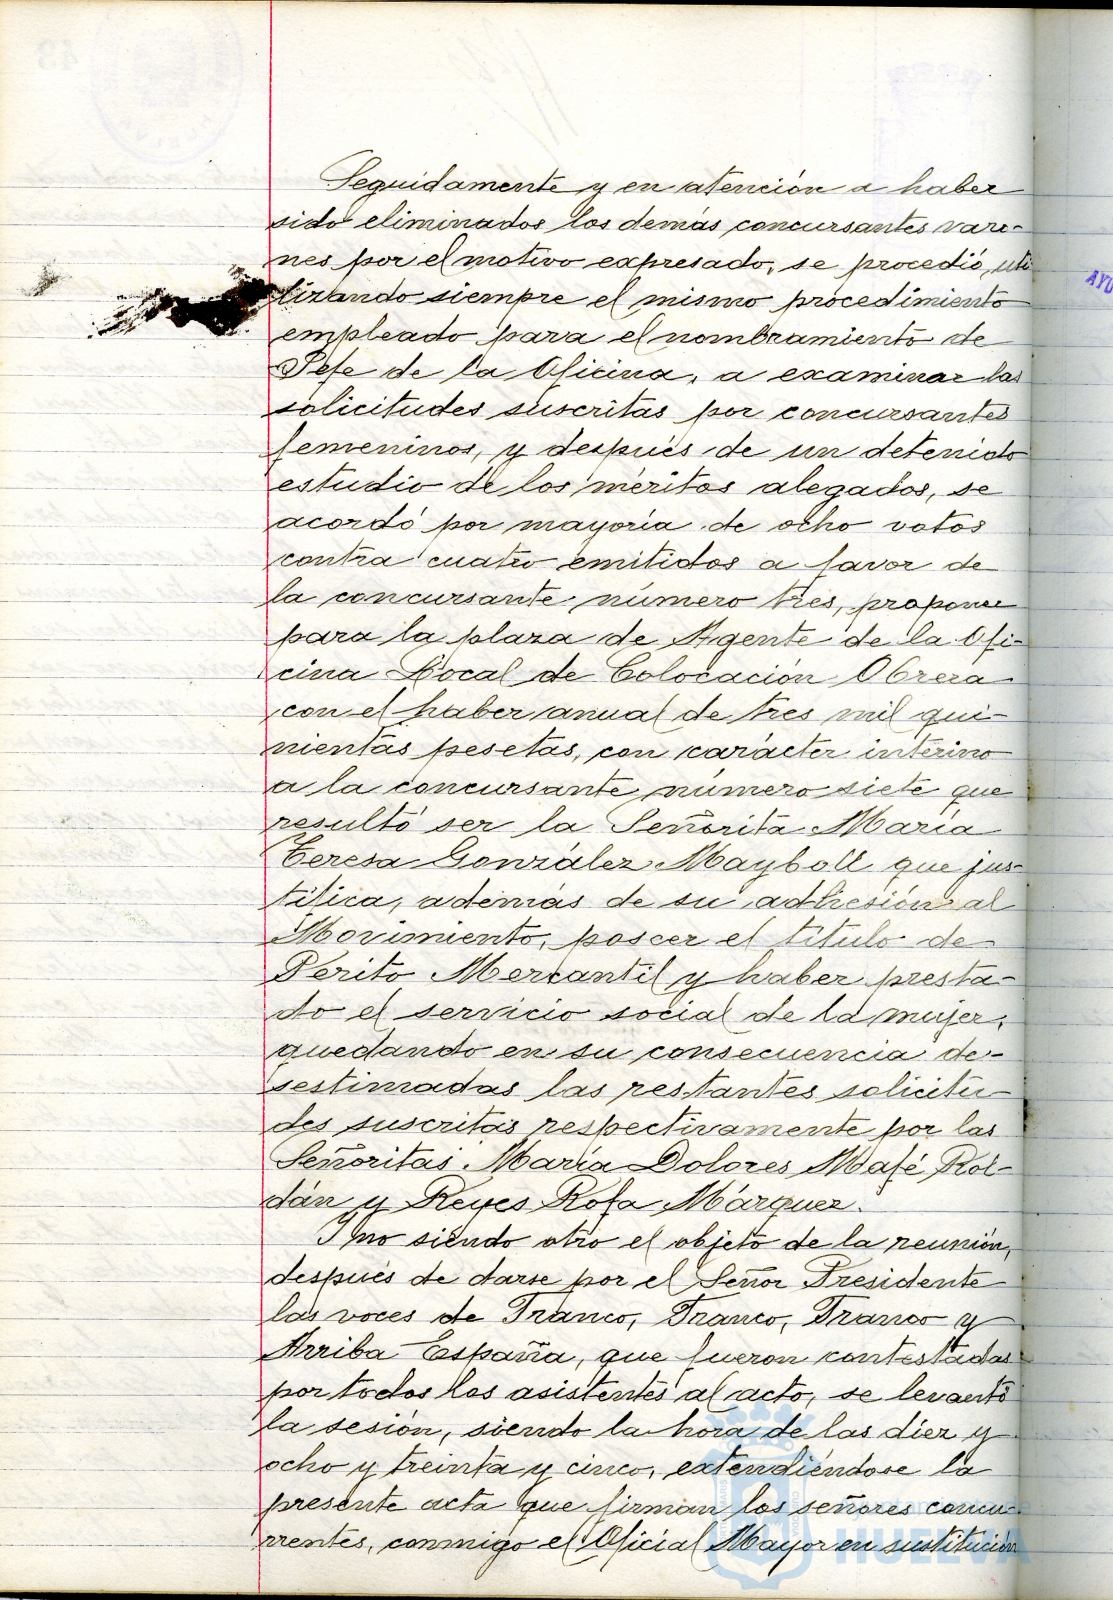 Seguidamente y en atención a haber
sido eliminados los demás concursantes varo-
nes por el motivo expresado, se procedió, uti
lizando siempre el mismo procedimiento
empleado para el nombramiento de
Jefe de la Oficina, a examinar las
solicitudes suscritas por concursantes
femeninos, y después de un detenido
estudio de los méritos alegados, se
acordó por mayoría de ocho votos
contra cuatro emitidos a favor de
la concursante número tres, proponer
para la plaza de Agente de la Ofi-
cina Local de Colocación Obrera
con el haber anual de tres mil qui-
nientas pesetas, con carácter interino
a la concursante número siete que
resultó ser la Señorita María
Teresa González Mayboll que jus-
tifica, además de su adhesión al
Movimiento, poseer el título de
Perito Mercantil y haber presta-
do el servicio social de la mujer,
quedando en su consecuencia de-
sestimadas las restantes solicitu-
des suscritas respectivamente por las
Señoritas María Dolores Mafé Rol-
dán y Reyes Rofa Márquez.
Y no siendo otro el objeto de la reunión,
después de darse por el Señor Presidente
las voces de Franco, Franco, Franco y
Arriba España, que fueron contestadas
por todos los asistentes al acto, se levantó
la sesión, siendo la hora de las diez y
ocho y treinta y cinco, extendiéndose la
presente acta que firman los señores concu-
rrentes, conmigo el Oficial Mayor en sustitución
AYU
HUELVA